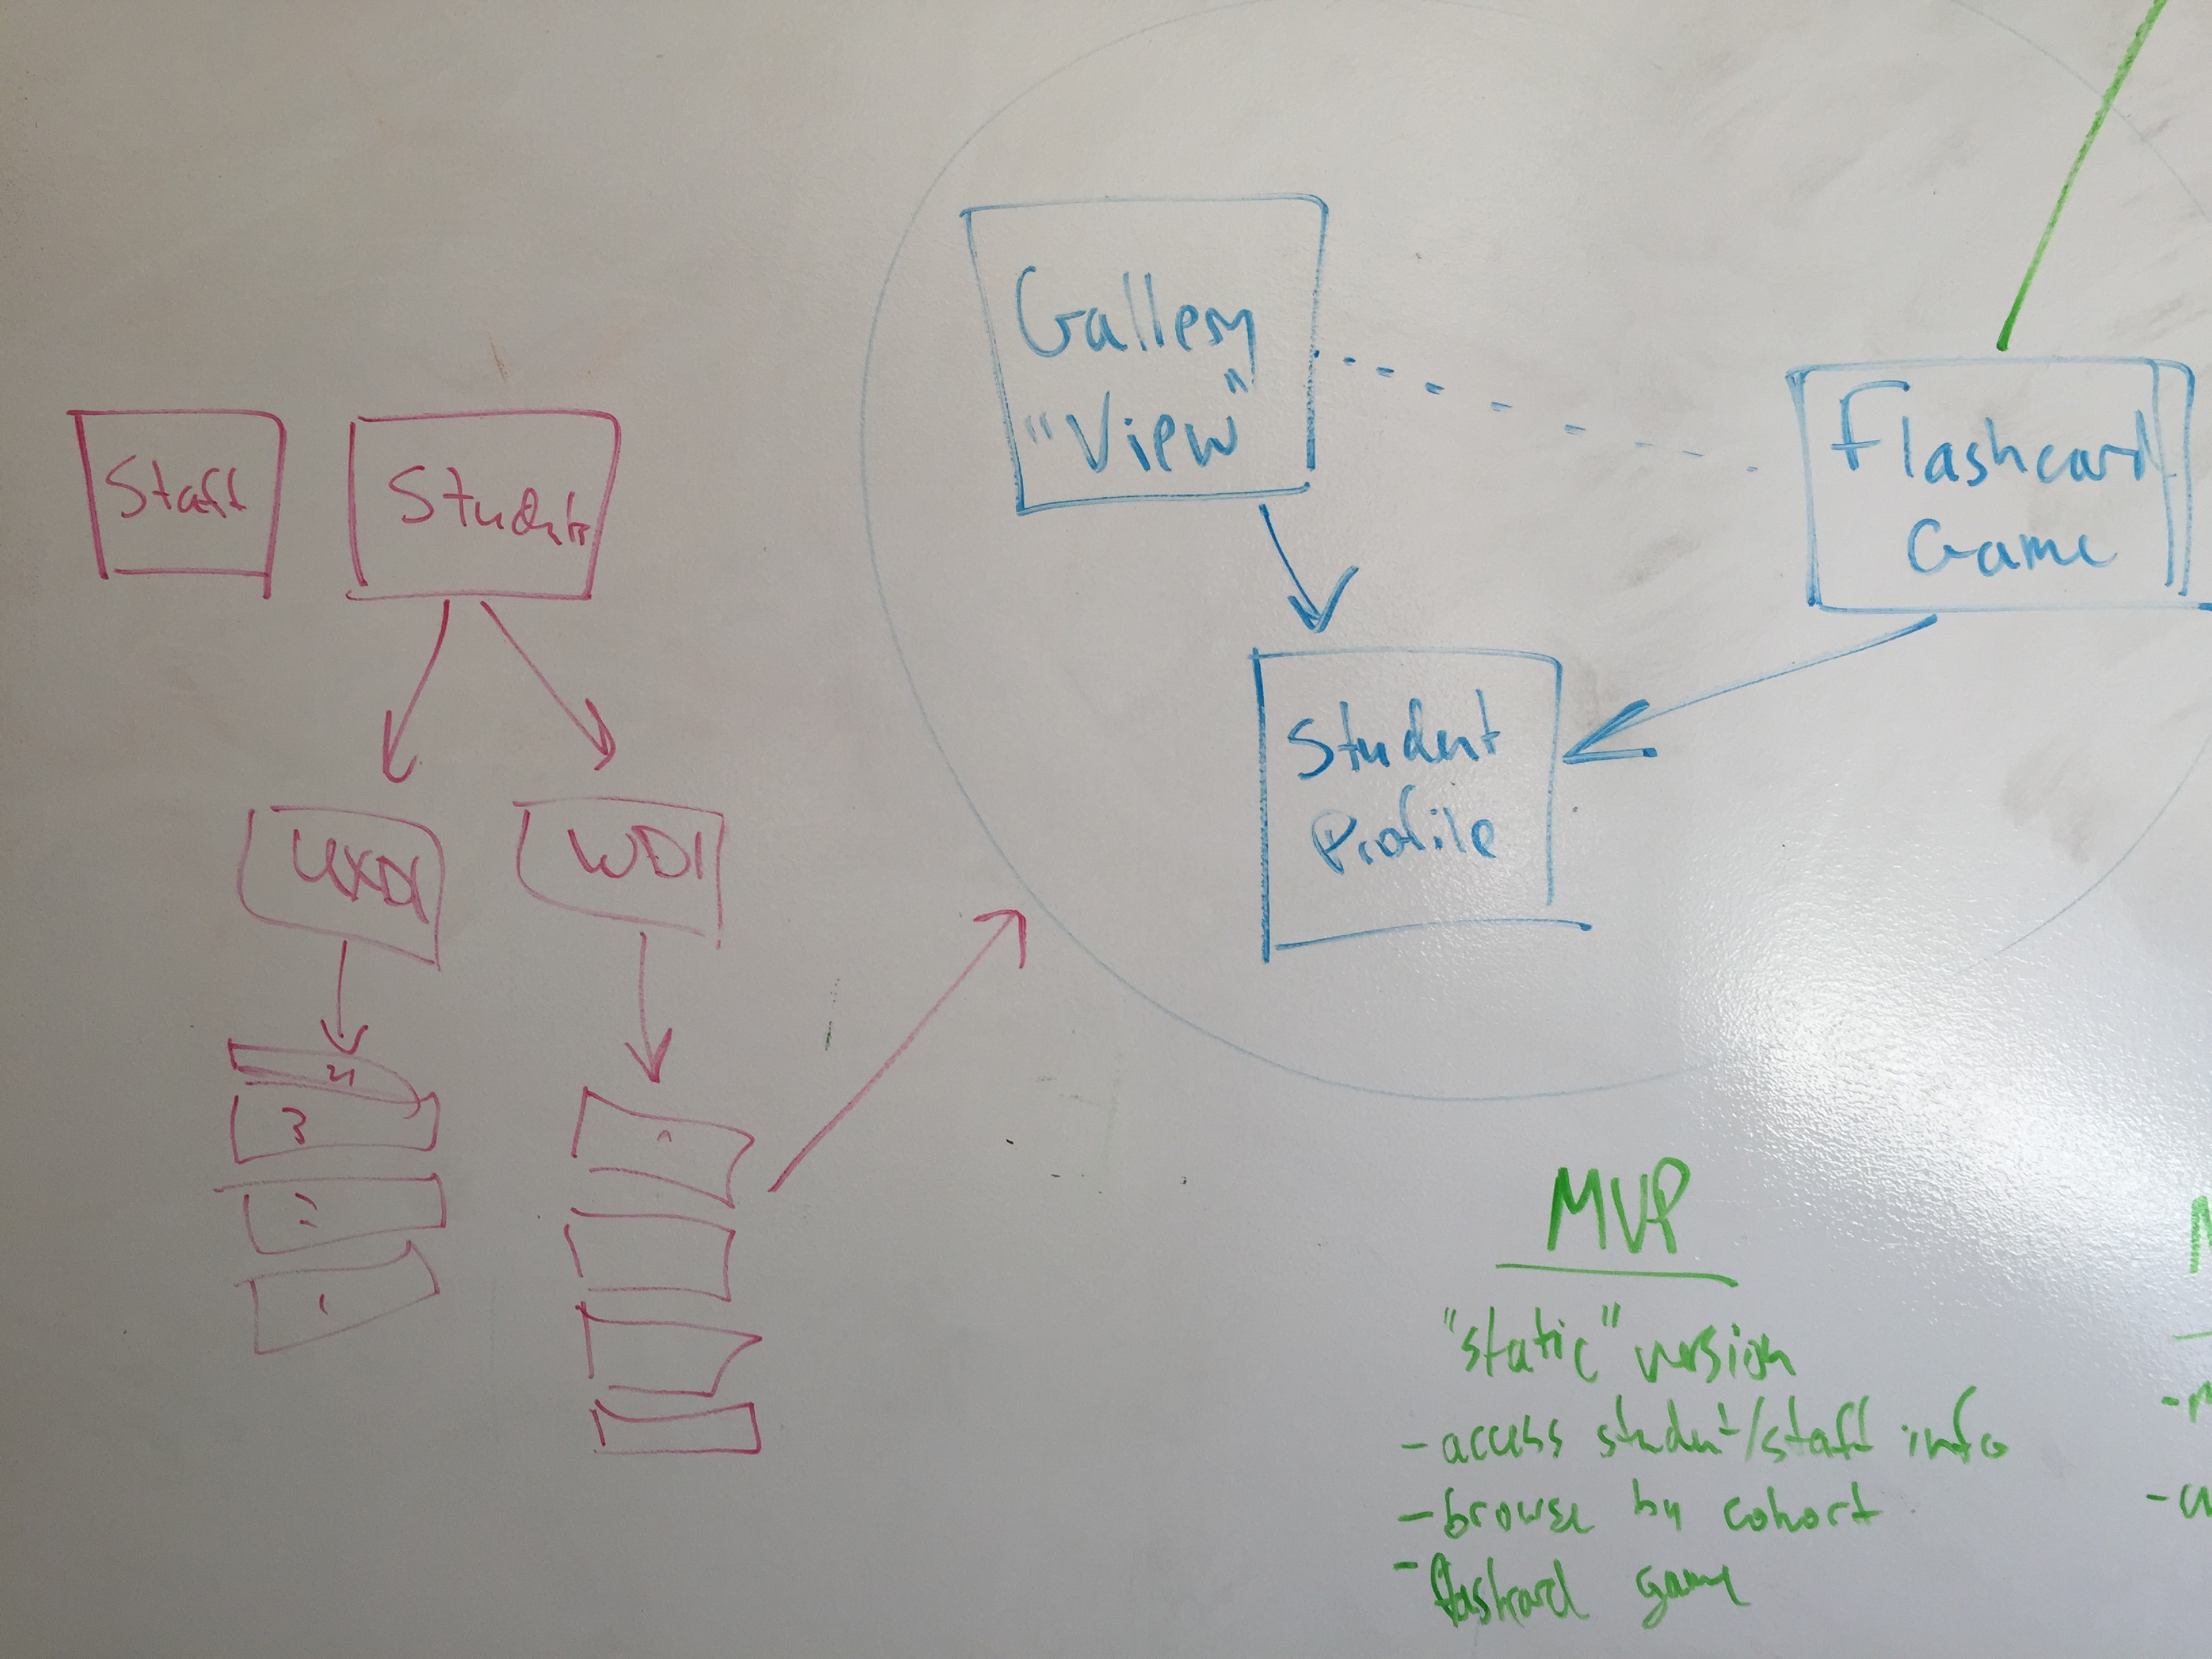 Staff
Students
UXDI
WDI
4
3
2
1
Gallery
"View"
Flashcard
Game
Student
Profile
MVP
"static" version
- access student/staff info
- browse by cohort
- flashcard game